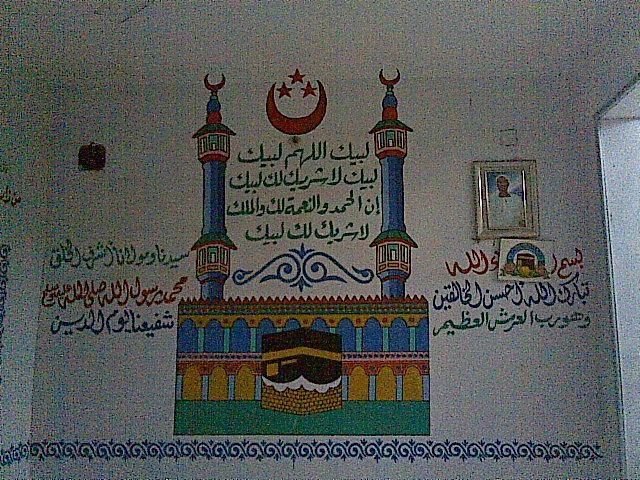 لبيك اللهم لبيك
لبيك لا شريك لك لبيك
إن الحمد والنعمة لك والملك
لا شريك لك لبيك
بسم الله
تبارك الله أحسن الخالقين
وهو رب العرش العظيم
سيدنا ومولانا أشرف الخلق
محمد رسول الله صلى الله عليه
شفيعنا يوم الدين